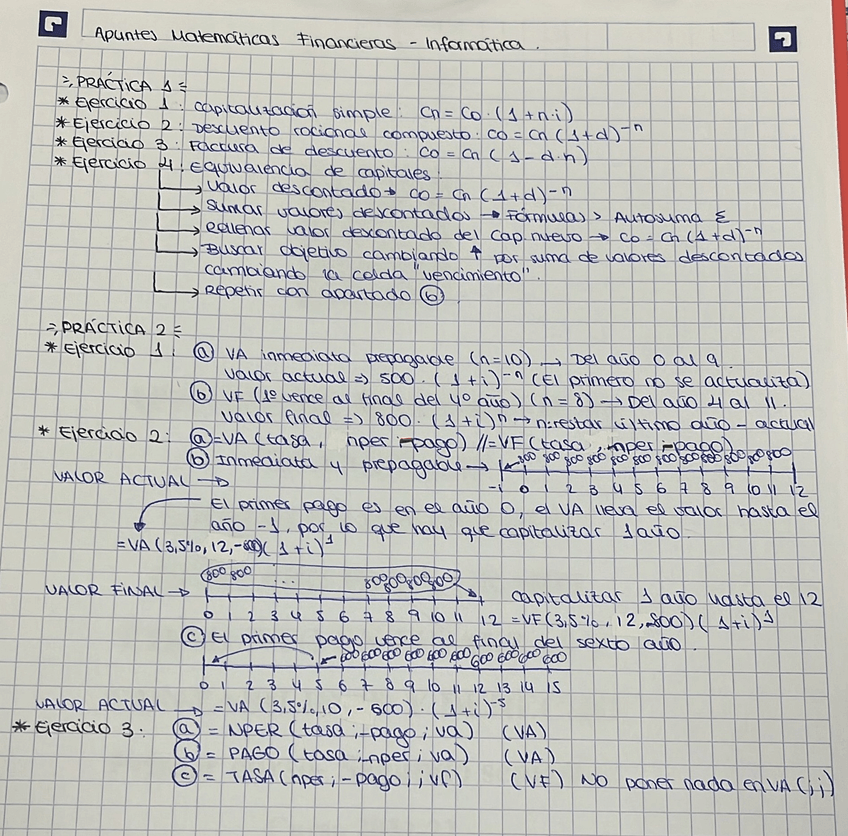 Apuntes Matemáticas Financieras - Informática.
=, PRÁCTICA 1=
* Ejercicio 1: Capitalización simple: Cn = Co · (1+n·i)
* Ejercicio 2: Descuento racional compuesto: Co = Cn (1+d)^-n
* Ejercicio 3: Factura de descuento: Co = Cn (1-d·n)
* Ejercicio 4: Equivalencia de capitales:
→ Valor descontado → Co = Cn (1+d)^-n
→ Sumar valores descontados → Fórmulas > Autosuma Σ
→ Rellenar valor descontado del cap. nuevo → Co = Cn (1+d)^-n
→ Buscar objetivo cambiando ↑ por suma de valores descontados
cambiando la celda "vencimiento".
→ Repetir con apartado ⓑ
=, PRÁCTICA 2=
* Ejercicio 1: ⓐ VA inmediata prepagable (n=10) → Del año 0 al 9.
Valor actual => 500 · (1+i)^-n (El primero no se actualiza)
ⓑ VF (1º vence al final del 4º año) (n=8) → Del año 4 al 11.
Valor final => 800 · (1+i)^n → n: restar último año - actual
* Ejercicio 2: ⓐ =VA (tasa, nper, -pago) // =VF (tasa, nper, -pago)
ⓑ Inmediata y prepagable → 800 800 800 800 800 800 800 800 800 800 800 800
-1 0 1 2 3 4 5 6 7 8 9 10 11 12
VALOR ACTUAL →
El primer pago es en el año 0, el VA lleva el valor hasta el
año -1, por lo que hay que capitalizar 1 año.
=VA (3,5%, 12, -800)(1+i)^1
800 800 ... 800 800 800 800
VALOR FINAL → Capitalizar 1 año hasta el 12
0 1 2 3 4 5 6 7 8 9 10 11 12 =VF (3,5%, 12, 800)(1+i)^1
ⓒ El primer pago vence al final del sexto año.
600 600 600 600 600 600 600 600 600 600
0 1 2 3 4 5 6 7 8 9 10 11 12 13 14 15
VALOR ACTUAL → =VA (3,5%, 10, -600) · (1+i)^-5
* Ejercicio 3: ⓐ = NPER (tasa; -pago; va) (VA)
ⓑ = PAGO (tasa; nper; va) (VA)
ⓒ = TASA (nper; -pago; ; vf) (VF) No poner nada en VA (; ;)